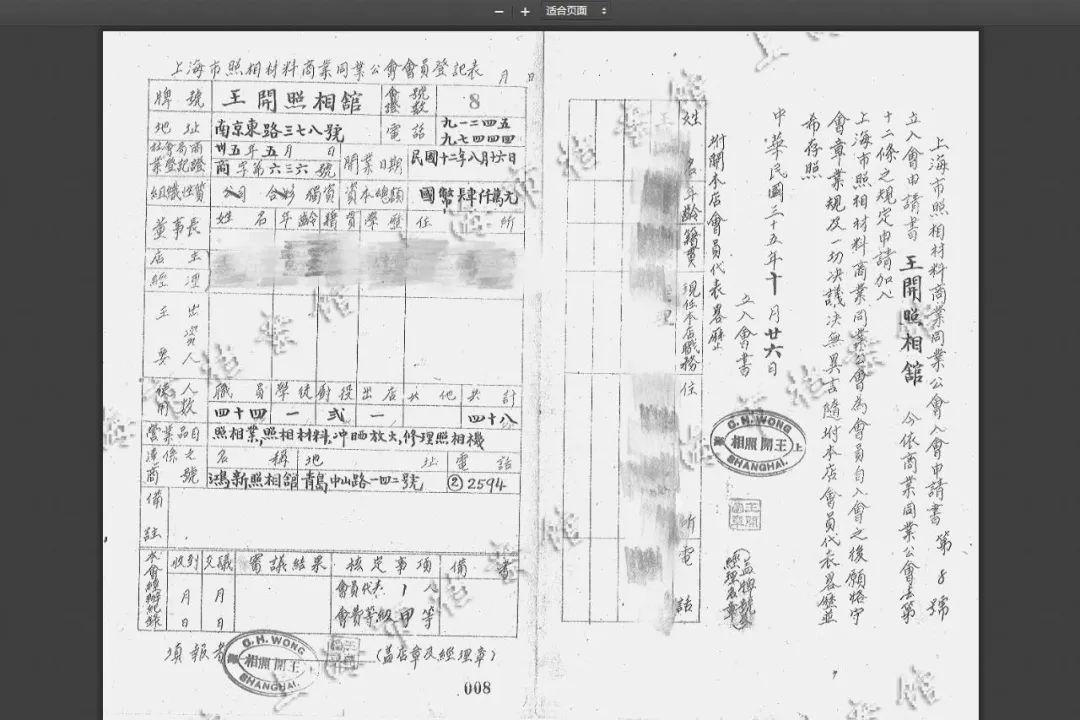 适合页面
上海市照相材料商業同業公會會員登記表 月 日
牌號 王開照相館 會證 號數 8
地址 南京東路三七八號 電話 九一二四五 九七四四四
社會局商業登記證 卅五年五月 日 商字第六三六號 開業日期 民國十二年八月十六日
組織性質 公司 合夥 獨資 資本總額 國幣肆仟萬元
董事長 姓名 年齡 籍貫 學歷 住所
店主
經理
主要出資人
使用人數 職員 學徒 廚役 出店 其他 共計
四十四 一 弍 一 四十八
營業品目 照相業,照相材料,冲晒放大,修理照相機
連係之商號 名稱 地址 電話
鴻新照相館 青島中山路一四二號 ② 2594
備註
本會經辦紀錄 收到 交議 審議結果 核定事項 備書
月 月 會員代表 1 人
日 日 會費等級 甲等
填報者 (蓋店章及經理章)
G.H.WONG
王開照相
SHANGHAI.
008
上海市照相材料商業同業公會入會申請書 第8號
立入會申請書 王開照相館 今依商業同業公會法第
十二條之規定申請加入
上海市照相材料商業同業公會為會員自入會之後願恪守
會章業規及一切決議決無異言隨附本店會員代表畧歷並
希存照
中華民國三十五年十月廿六日
立入會書
(蓋牌號及經理店章)
G.H.WONG
上海 王開照相
SHANGHAI.
附開本店會員代表畧歷
姓名 年齡 籍貫 現任本店職務 住所 電話